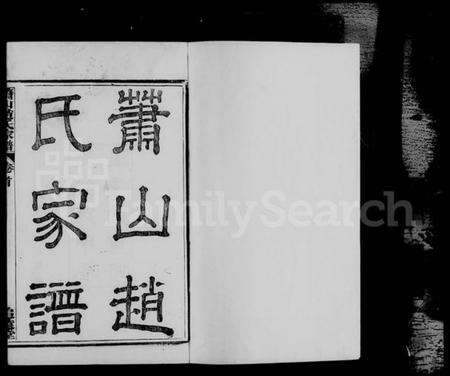 蕭山趙
氏家譜
FamilySearch